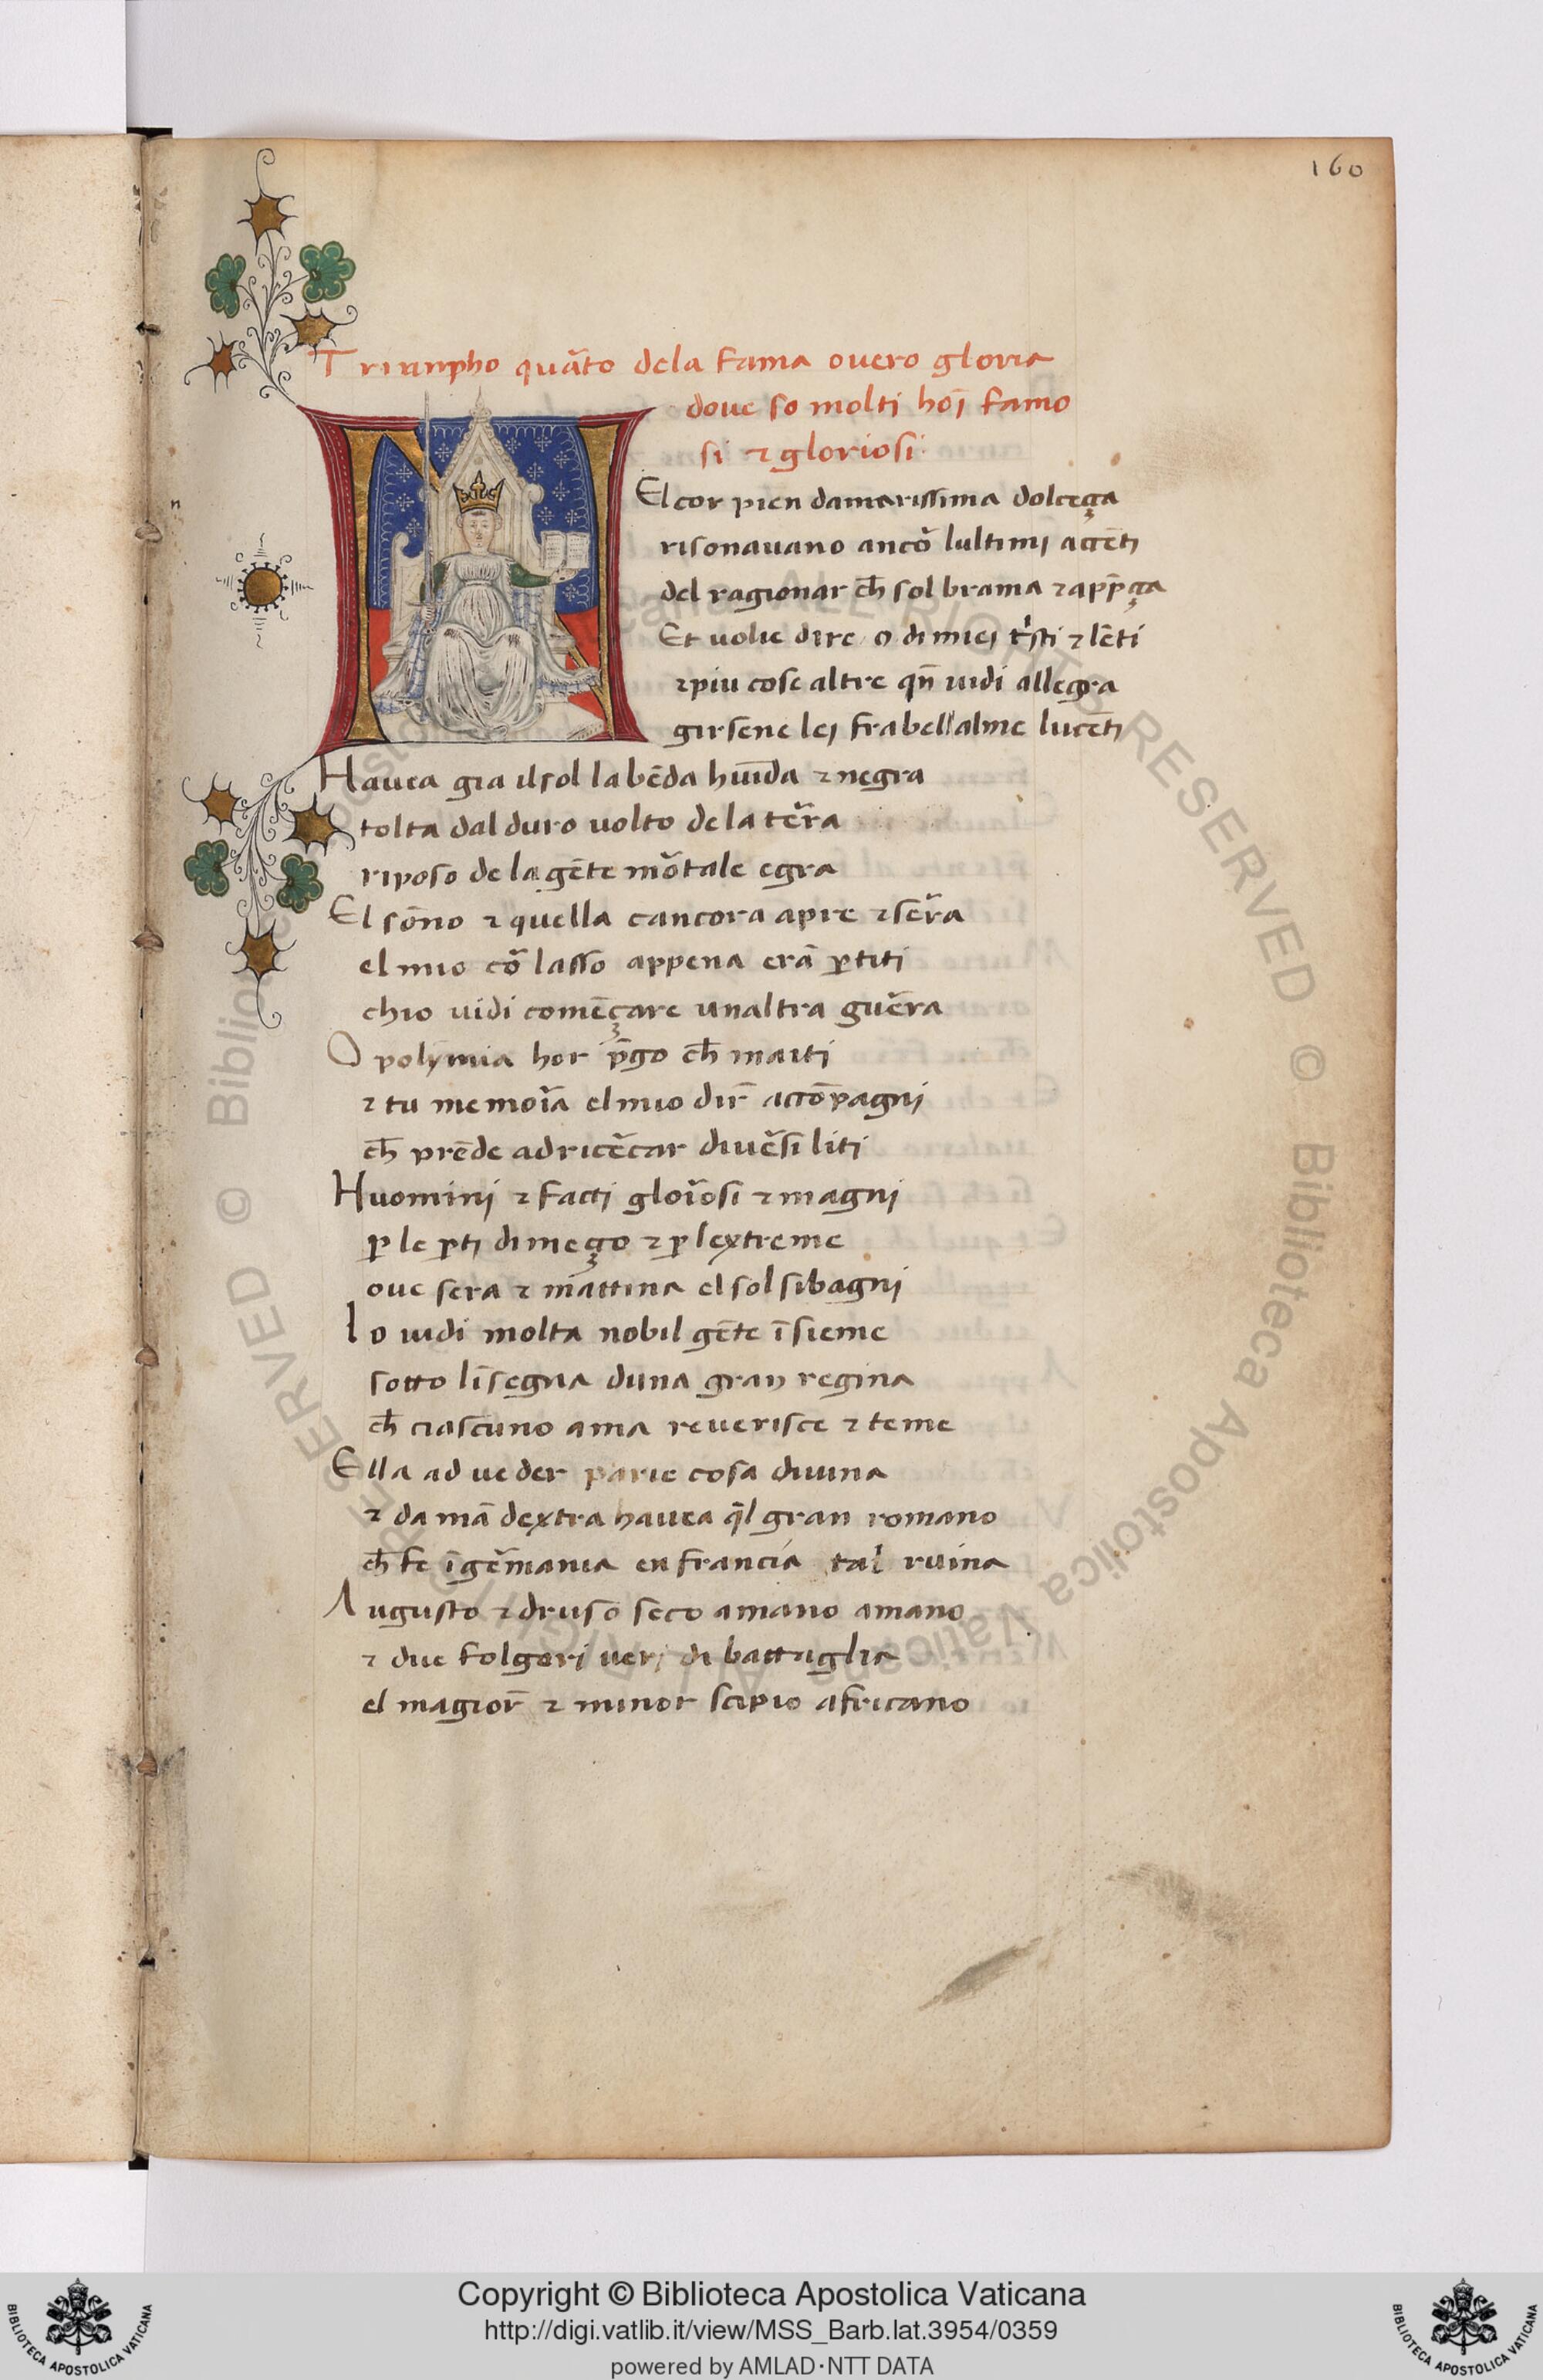 160
Triunpho quãto dela fama overo gloria
dove so molti hoĩ famo
si ⁊ gloriosi
n
El cor pien damarissima dolceça
risonavano ancõ lultimj accẽtj
del ragionar ch̃ sol brama ⁊ app̃ça
Et volie dire o dimiej tristi ⁊ lẽti
⁊ piu cose altre qñ vidi allegra
girsene lej fra bellalme lucẽtj
Havea gia il sol la bẽda hũida ⁊ negra
tolta dal duro volto dela tẽra
riposo dela gẽte mõtale egra
El sõno ⁊ quella cancora apre ⁊ sẽra
el mio cõ lasso appena erã ꝑtiti
chio vidi comẽçare unaltra guẽra
O polymia hor p̃go ch̃ maiti
⁊ tu memoĩa el mio dir̃ accõpagnj
ch̃ prẽde ad ricẽcar divẽsi litj
Huominj ⁊ factj gloĩosi ⁊ magnj
ꝑ le ꝑtj dimeço ⁊ ꝑ lextreme
ove sera ⁊ mattina el sol sibagnj
Io vidi molta nobil gẽte ĩsieme
sotto lĩsegna duna gran regina
ch̃ ciascuno ama reverisce ⁊ teme
Ella ad veder parie cosa divina
⁊ da mã dextra havea q̃l gran romano
ch̃ fe ĩ gẽmania en francia tal ruina
Augusto ⁊ druso seco amano amano
⁊ due folgorj verj di battaglia
el magior̃ ⁊ minor scipio africano
© Biblioteca Apostolica Vaticana ALL RIGHTS RESERVED
BIBLIOTECA APOSTOLICA VATICANA
Copyright © Biblioteca Apostolica Vaticana
http://digi.vatlib.it/view/MSS_Barb.lat.3954/0359
powered by AMLAD·NTT DATA
BIBLIOTECA APOSTOLICA VATICANA